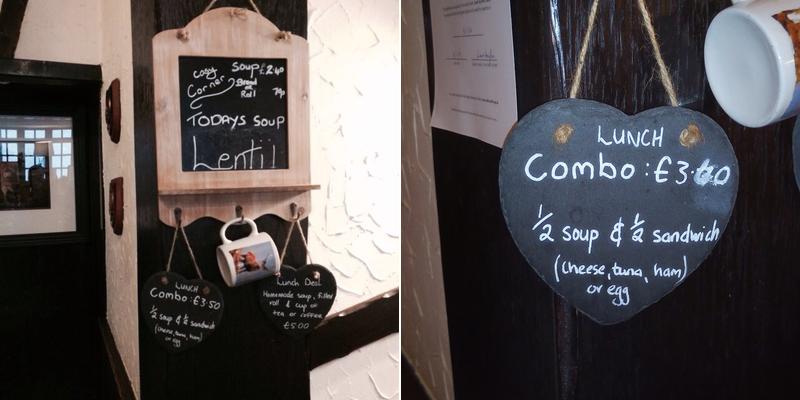 Cosy
Corner
Soup £2.40
Bread
or
Roll
70p
TODAYS SOUP
Lentil
LUNCH
Combo: £3.50
½ soup & ½ sandwich
(cheese, tuna, ham)
or egg
Lunch Deal
Homemade soup, filled
roll & cup of
tea or coffee
£5.00
LUNCH
Combo: £3.60
½ soup & ½ sandwich
(cheese, tuna, ham)
or egg